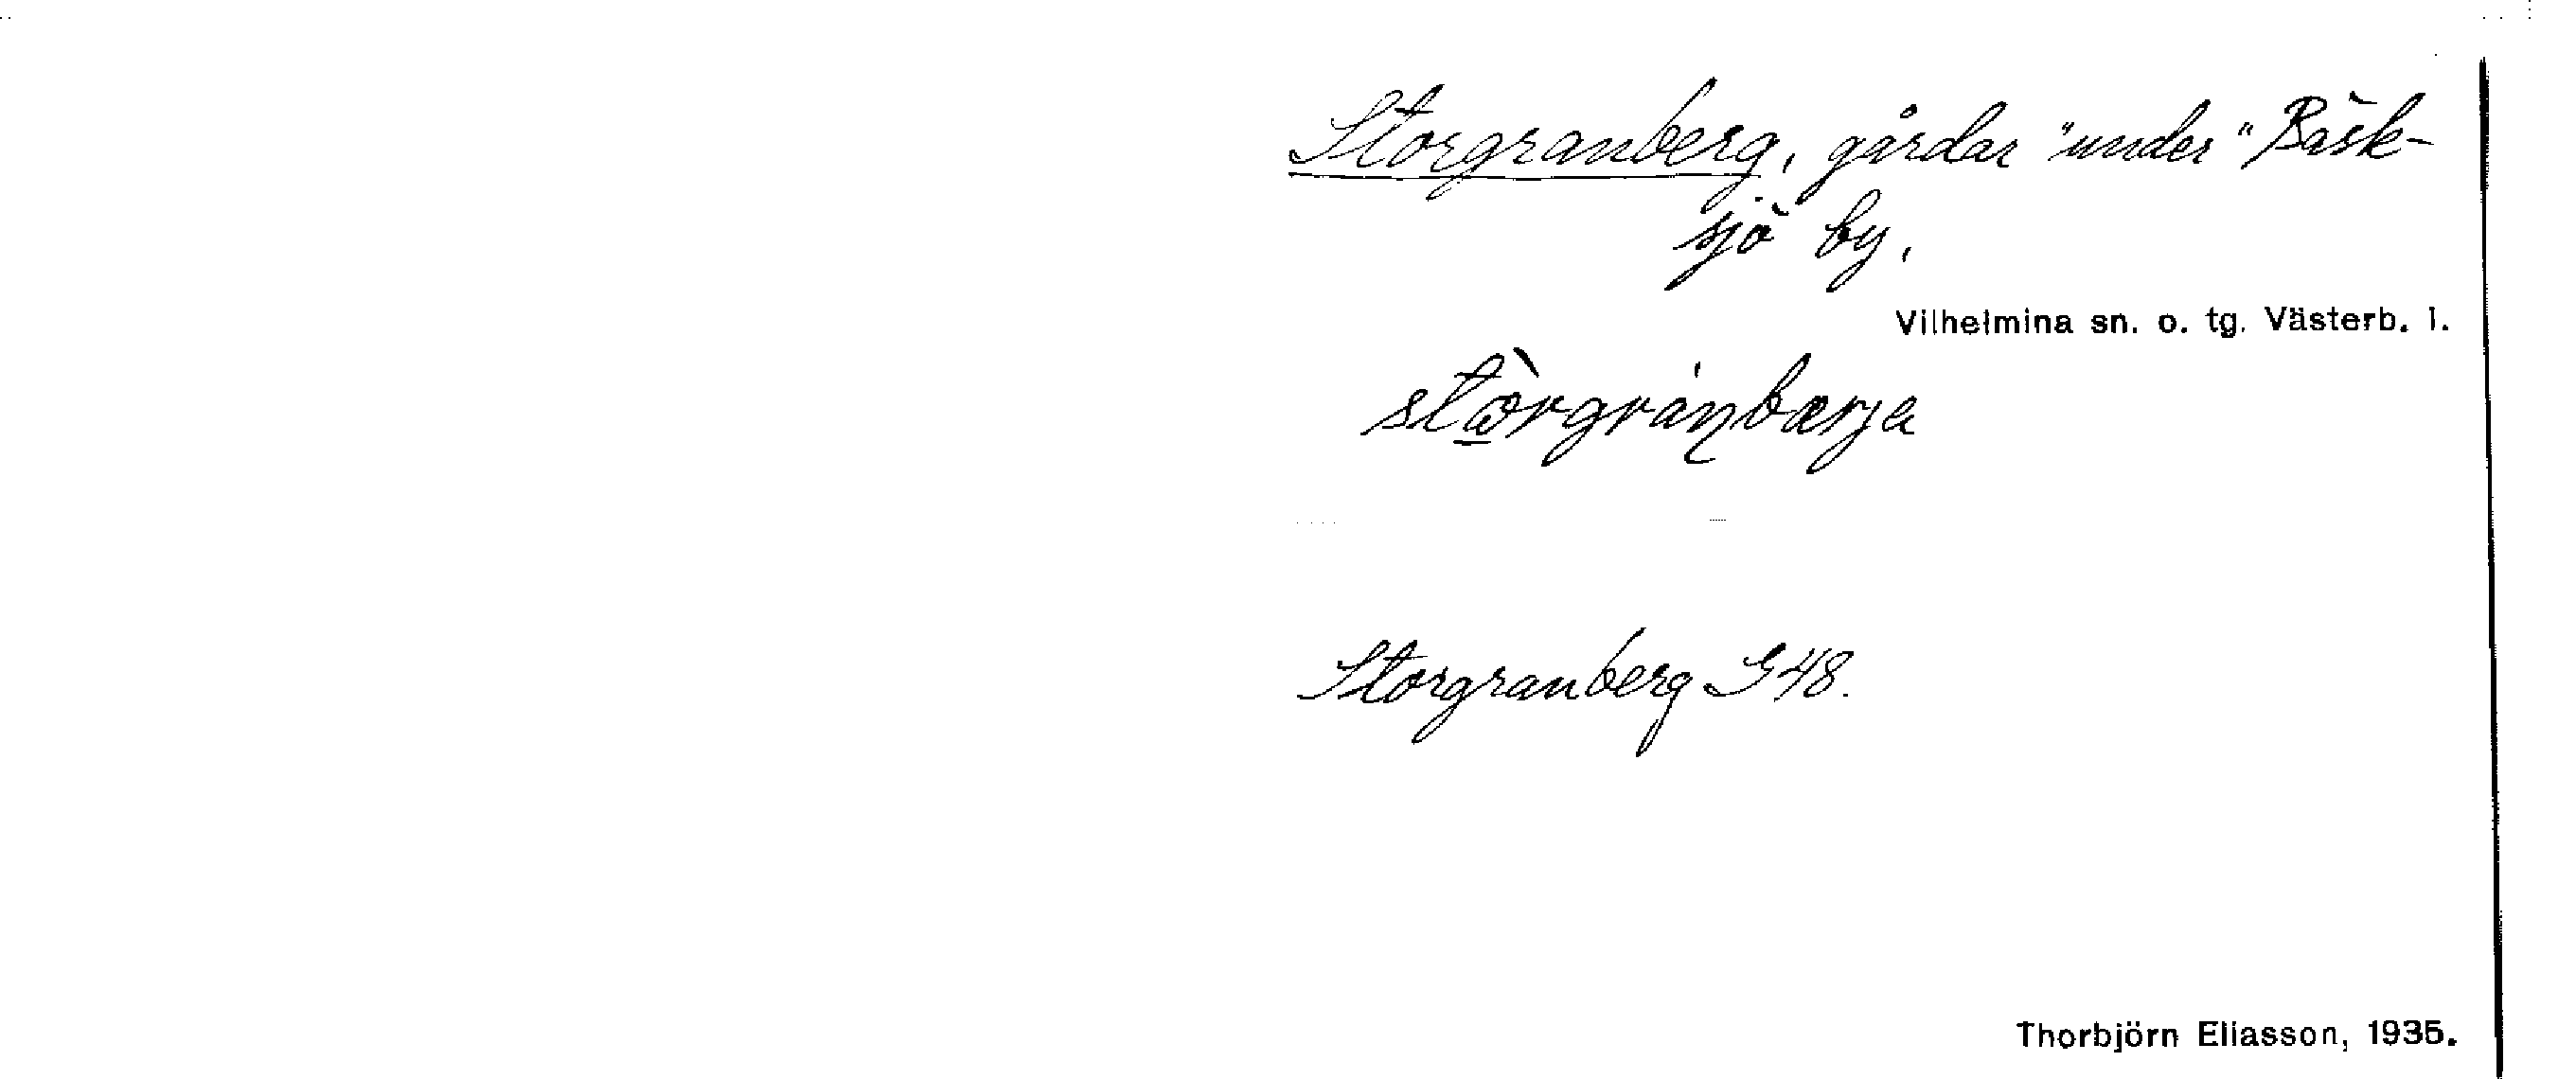 Storgranberg, gårdar "under" Bäck-
sjö by.
Vilhelmina sn. o. tg. Västerb. l.
stòrgránbærja
Storgranberg G48.
Thorbjörn Eliasson, 1935.